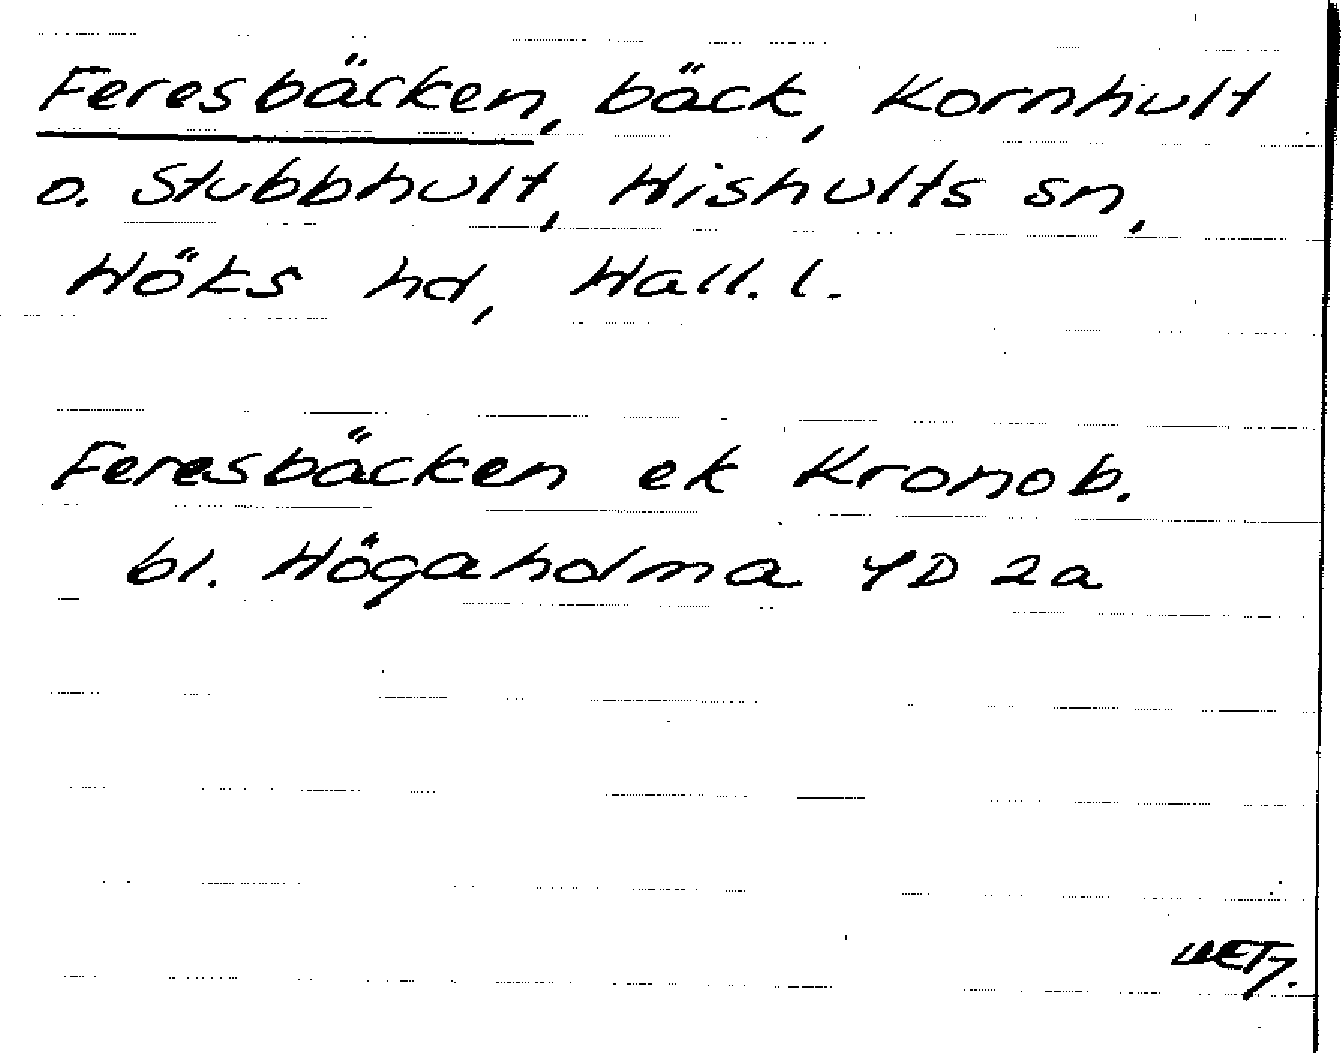 Feresbäcken, bäck, Kornhult
o. Stubbhult, Hishults sn,
Höks hd, Hall. l.
Feresbäcken ek Kronob.
bl. Högaholma 4D 2a